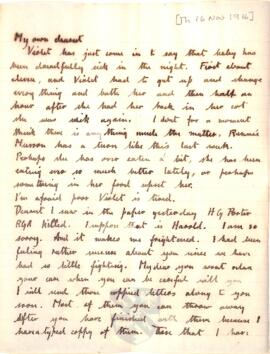 [Th 16 Nov 1916]
My own dearest
Violet has just come in to say that baby has
been dreadfully sick in the night. First about
eleven, and Violet had to get up and change
everything and bath her and then half an
hour after she had her back in her cot
she was sick again. I don't for a moment
think there is anything much the matter. Ronnie
had a turn like this last week.
Perhaps she has over eaten a bit, she has been
eating ever so much better lately, or perhaps
something in her food upset her.
I'm afraid poor Violet is tired.
Dearest I saw in the paper yesterday H G
RGA killed. I suppose that is Harold. I am so
sorry. And it makes me frightened. I had been
feeling rather secure about you since we have
had so little fighting. My dear you won't
your care when you can be careful will you
I will send those copied letters along to you
soon. Most of them you can throw away
after you have finished with them because I
have a typed copy of them. Those that I have